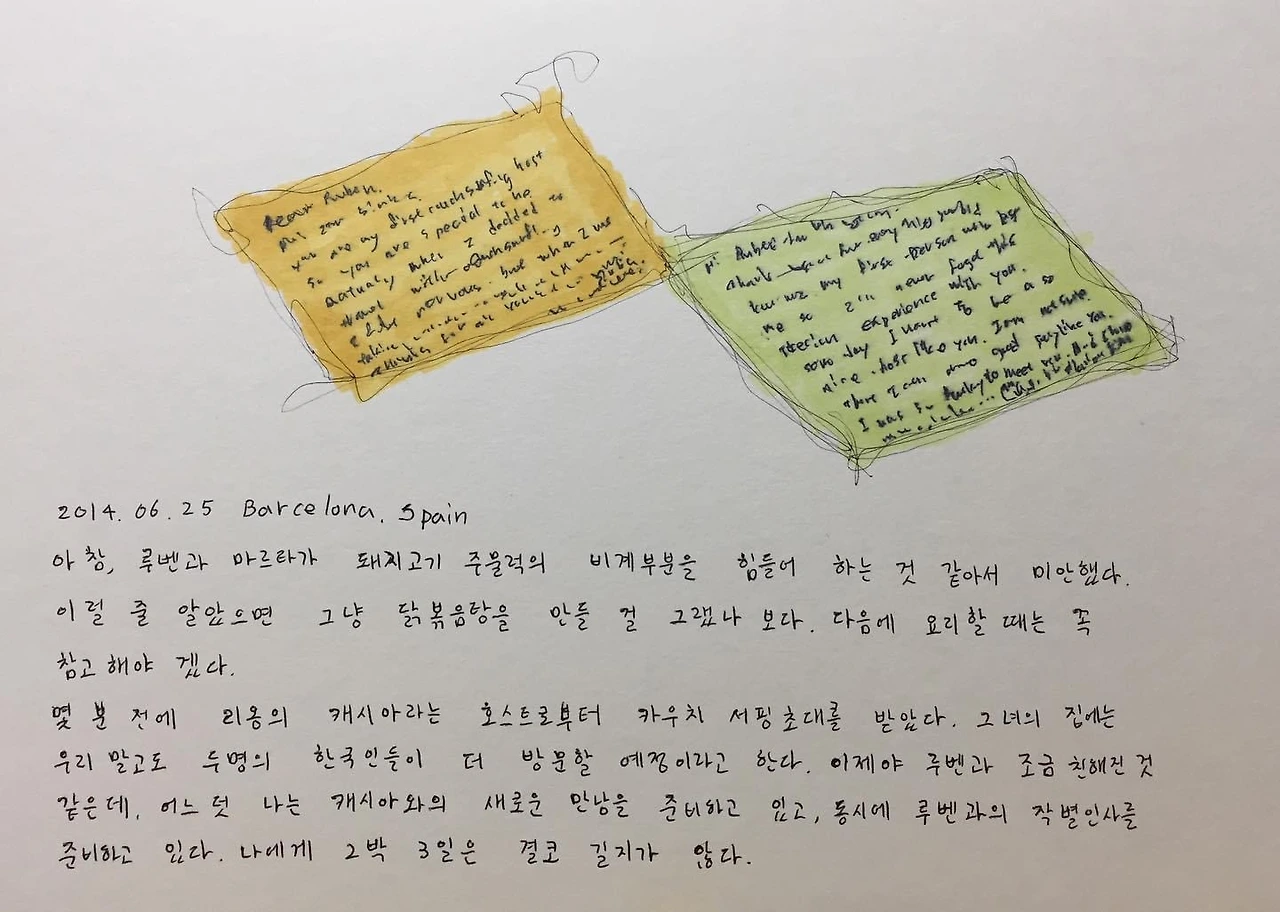 Dear Ruben.
you are my first couchsurfing host
so you are special to me
actually when I decided to
travel with couchsurfing
nervous. but when I
Hi Ruben
thank for everything you did
my first person who
me so I'll never forget this
experience with you.
some day I want to be a so
nice host like you. I am not sure
I can good guy like you.
I was so lucky to meet you.
2014. 06. 25 Barcelona. Spain
아 참, 루벤과 마르타가 돼지고기 주물럭의 비계부분을 힘들어 하는 것 같아서 미안했다.
이럴 줄 알았으면 그냥 닭볶음탕을 만들 걸 그랬나 보다. 다음에 요리할 때는 꼭
참고해야 겠다.
몇 분 전에 리옹의 캐시아라는 호스트로부터 카우치 서핑초대를 받았다. 그녀의 집에는
우리 말고도 두명의 한국인들이 더 방문할 예정이라고 한다. 이제야 루벤과 조금 친해진 것
같은데, 어느 덧 나는 캐시아와의 새로운 만남을 준비하고 있고, 동시에 루벤과의 작별인사를
준비하고 있다. 나에게 2박 3일은 결코 길지가 않다.